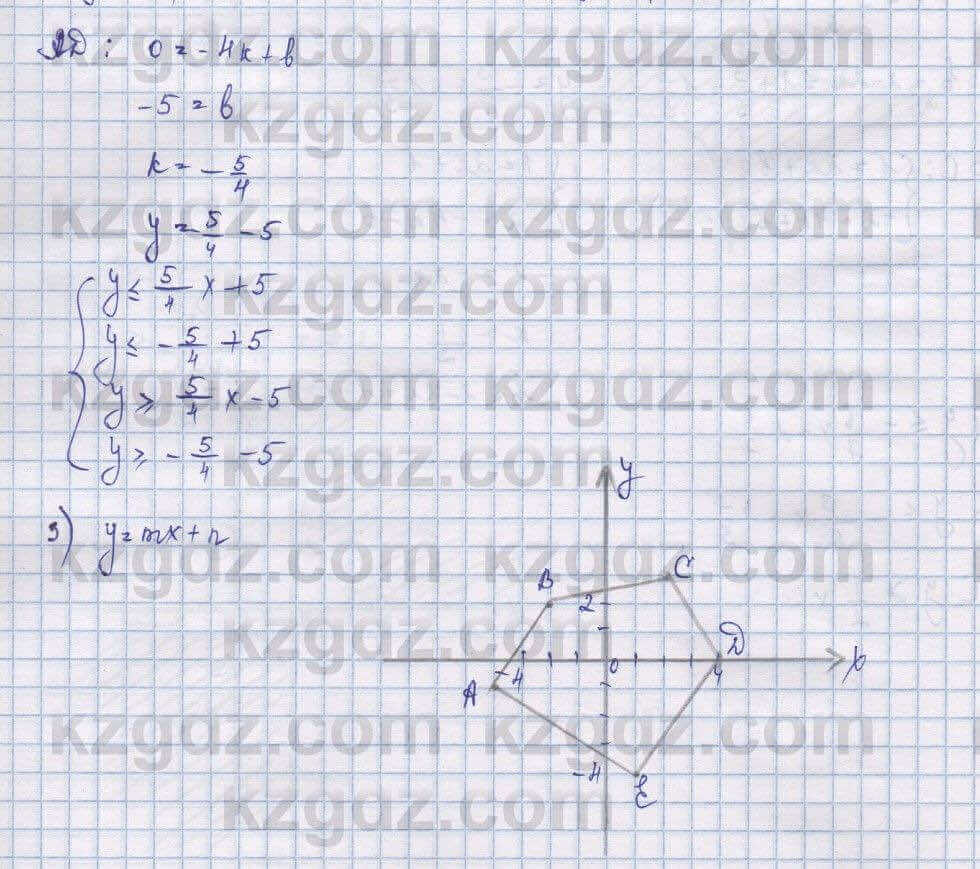 AD: 0 = -4k + b
-5 = b
k = -5/4
y = -5/4 - 5
y ≤ 5/4 x + 5
y ≤ -5/4 + 5
y ≥ 5/4 x - 5
y ≥ -5/4 - 5
3) y = mx + n
y
B
C
2
Д
-4
0
4
x
A
-4
E
kzgdz.com kzgdz.com
kzgdz.com
kzgdz.com kzgdz.com
kzgdz.com
kzgdz.com kzgdz.com
kzgdz.com
kzgdz.com kzgdz.com
kzgdz.com
kzgdz.com kzgdz.com
kzgdz.com